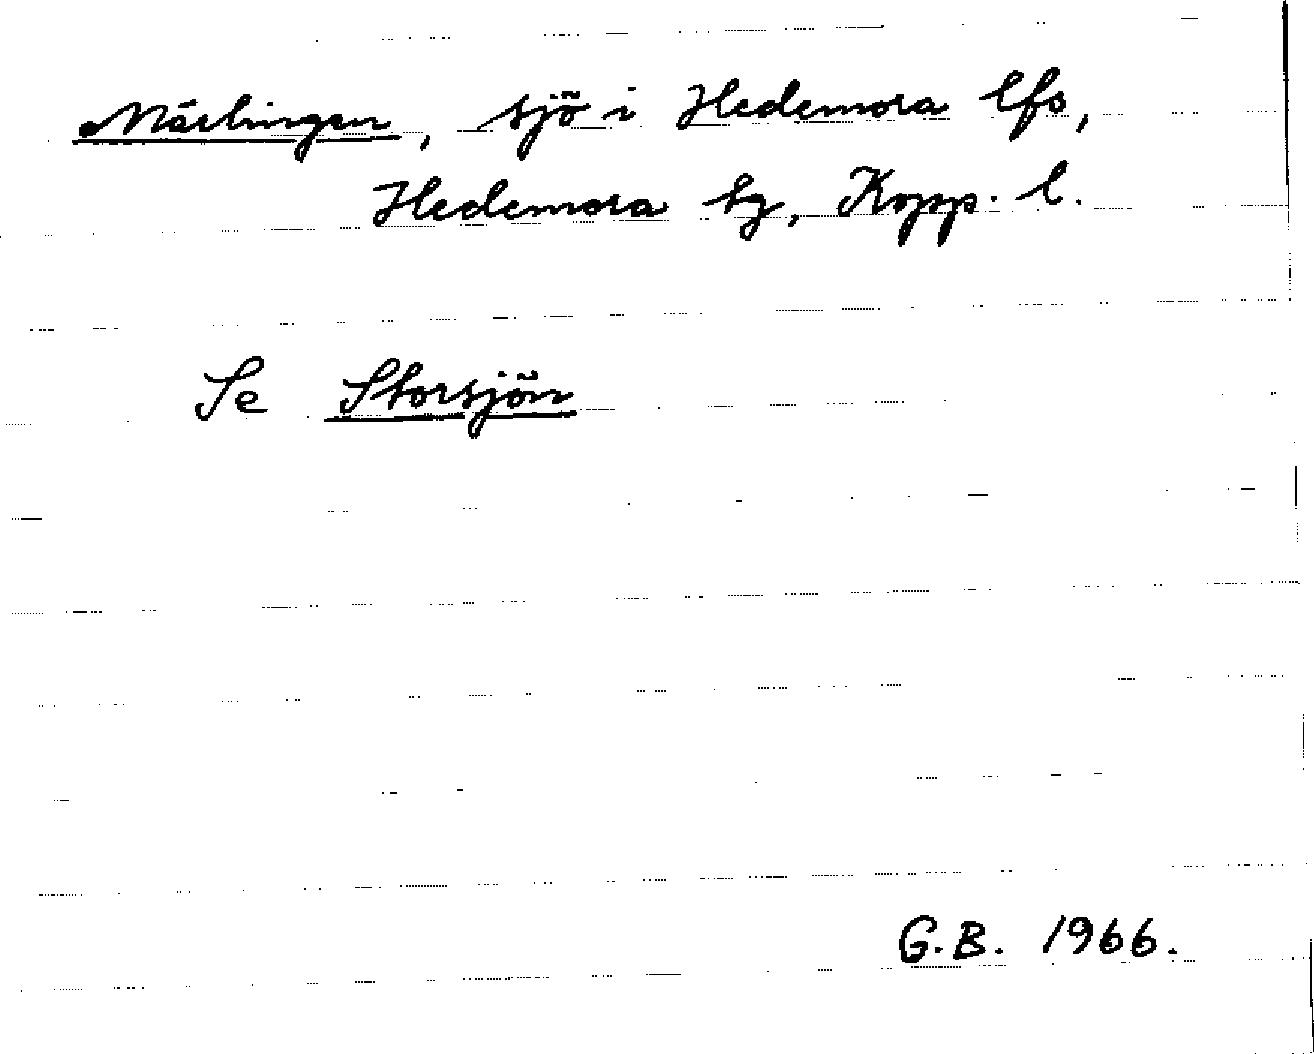 Märlingen, sjö i Hedemora lfs,
Hedemora tg, Kopp. l.
Se Storsjön
G.B. 1966.